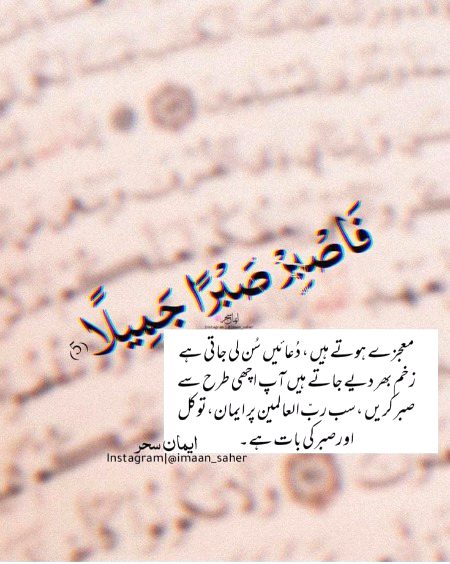 فَاصْبِرْ صَبْرًا جَمِيلًا (5)
ایمان سحر
Instagram|@imaan_saher
معجزے ہوتے ہیں ، دُعائیں سُن لی جاتی ہے
زخم بھر دیے جاتے ہیں آپ اچھی طرح سے
صبر کریں ، سب ربّ العالمین پر ایمان، توکل
اور صبر کی بات ہے۔
ایمان سحر
Instagram|@imaan_saher